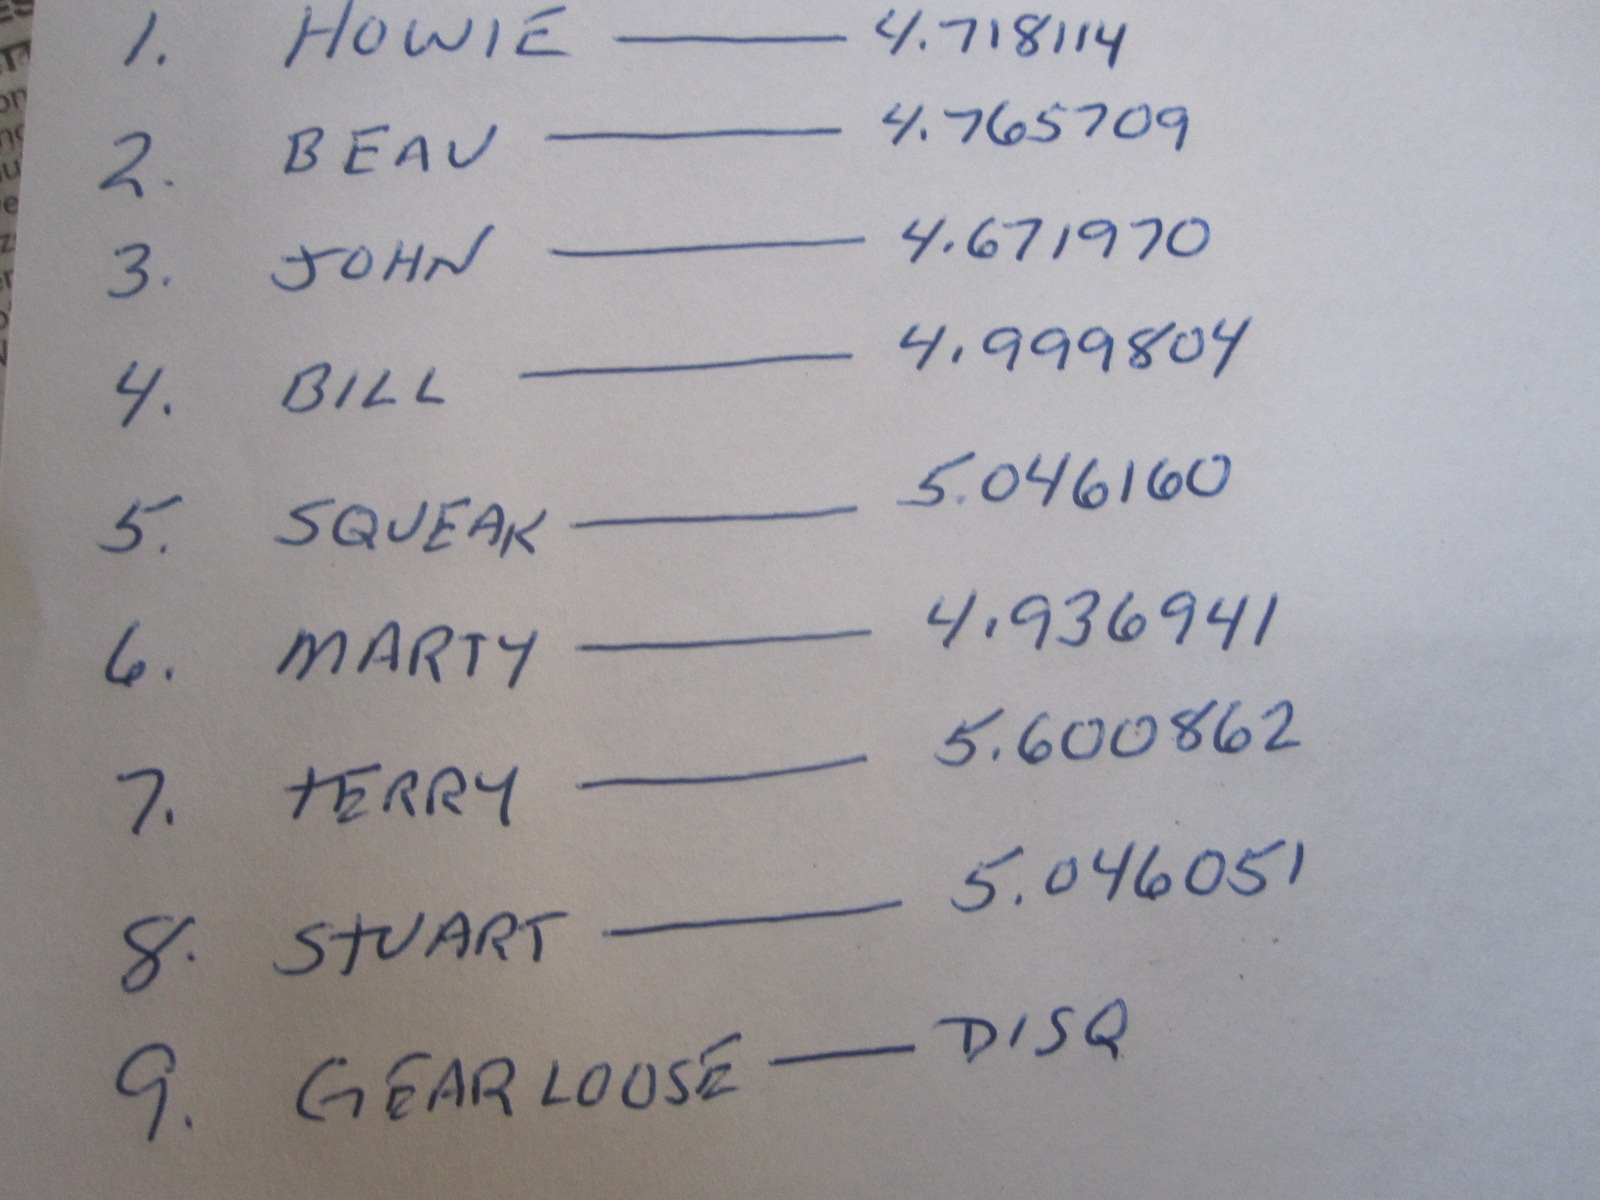 1. HOWIE — 4.718114
2. BEAU — 4.765709
3. JOHN — 4.671970
4. BILL — 4.999804
5. SQUEAK — 5.046160
6. MARTY — 4.936941
7. TERRY — 5.600862
8. STUART — 5.046051
9. GEARLOOSE — DISQ